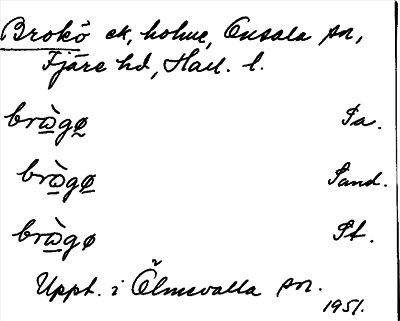 Brokö ek, holme, Onsala sn,
Fjäre hd, Hall. l.
brògø Ia.
brògø Sand.
brògø St.
Uppt. i Ölmevalla sn.
1951.